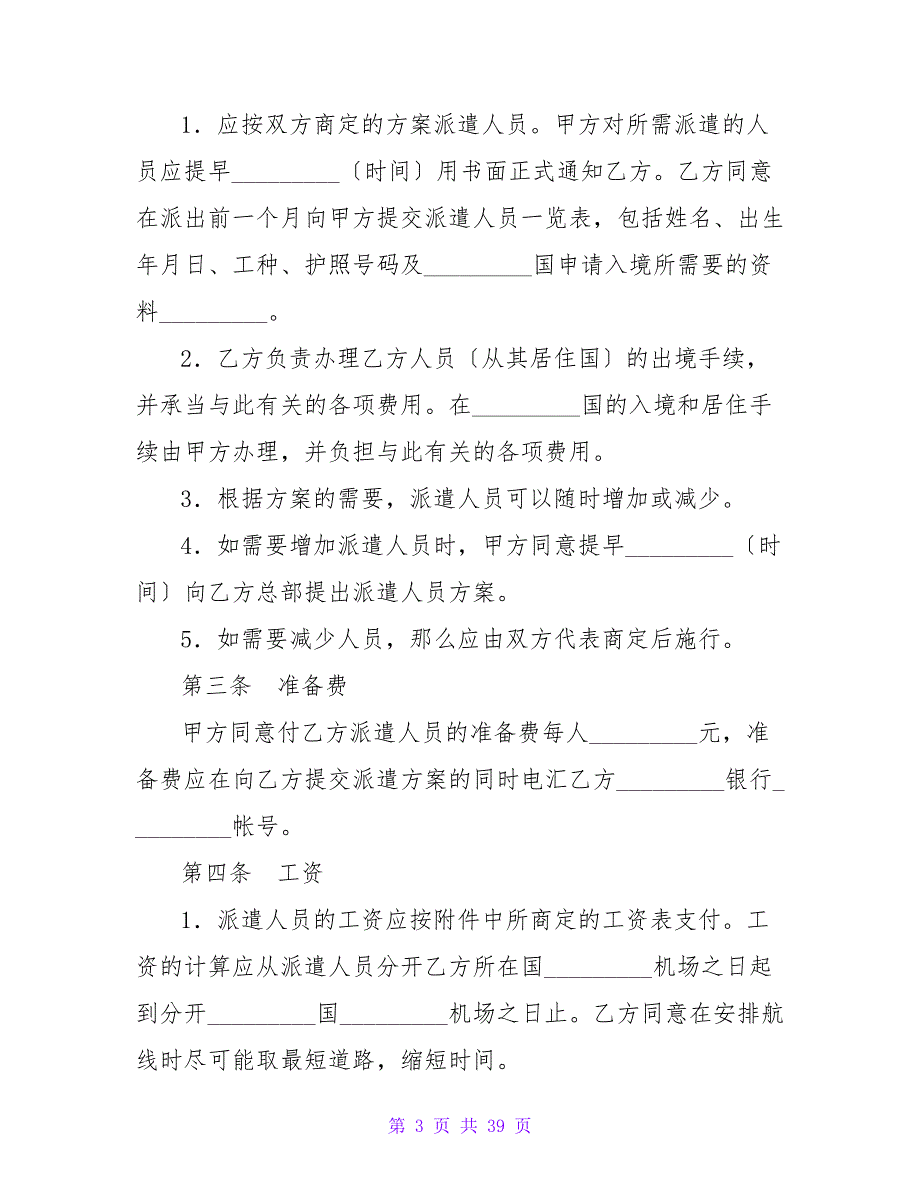 1．应按双方商定的方案派遣人员。甲方对所需派遣的人
员应提早_________〔时间〕用书面正式通知乙方。乙方同意
在派出前一个月向甲方提交派遣人员一览表，包括姓名、出生
年月日、工种、护照号码及_________国申请入境所需要的资
料_________。
2．乙方负责办理乙方人员〔从其居住国〕的出境手续，
并承当与此有关的各项费用。在_________国的入境和居住手
续由甲方办理，并负担与此有关的各项费用。
3．根据方案的需要，派遣人员可以随时增加或减少。
4．如需要增加派遣人员时，甲方同意提早_________〔时
间〕向乙方总部提出派遣人员方案。
5．如需要减少人员，那么应由双方代表商定后施行。
第三条　准备费
甲方同意付乙方派遣人员的准备费每人_________元，准
备费应在向乙方提交派遣方案的同时电汇乙方_________银行_
________帐号。
第四条　工资
1．派遣人员的工资应按附件中所商定的工资表支付。工
资的计算应从派遣人员分开乙方所在国_________机场之日起
到分开_________国_________机场之日止。乙方同意在安排航
线时尽可能取最短道路，缩短时间。
第 3 页 共 39 页